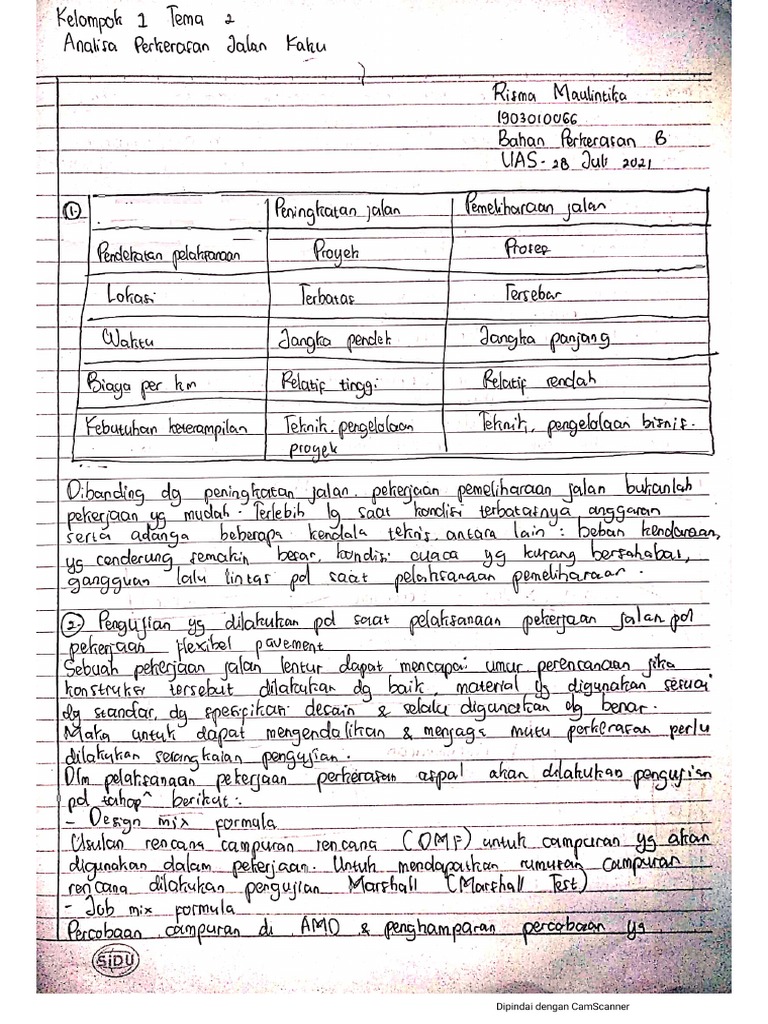 Kelompok 1 Tema 2
Analisa Perkerasan Jalan Kaku
Risma Maulintika
1903010066
Bahan Perkerasan B
UAS - 28 Juli 2021
1. Peningkatan jalan Pemeliharaan jalan
Pendekatan pelaksanaan Proyek Proses
Lokasi Terbatas Tersebar
Waktu Jangka pendek Jangka panjang
Biaya per km Relatif tinggi Relatif rendah
Kebutuhan keterampilan Teknik, pengelolaan proyek Teknik, pengelolaan bisnis.
Dibanding dg peningkatan jalan, pekerjaan pemeliharaan jalan bukanlah
pekerjaan yg mudah. Terlebih lg saat kondisi terbatasnya anggaran
serta adanga beberapa kendala teknis, antara lain : beban kendaraan,
yg cenderung semakin besar, kondisi cuaca yg kurang bersahabat,
gangguan lalu lintas pd saat pelaksanaan pemeliharaan.
2. Pengujian yg dilakukan pd saat pelaksanaan pekerjaan jalan pd
pekerjaan flexibel pavement
Sebuah pekerjaan jalan lentur dapat mencapai umur perencanaan jika
konstruksi tersebut dilakukan dg baik, material yg digunakan sesuai
dg standar, dg spesifikasi desain & selalu digunakan dg benar.
Maka untuk dapat mengendalikan & menjaga mutu perkerasan perlu
dilakukan serangkaian pengujian.
Dlm pelaksanaan pekerjaan perkerasan aspal akan dilakukan pengujian
pd tahap^ berikut :
- Design mix formula
Usulan rencana campuran rencana (DMF) untuk campuran yg akan
digunakan dalam pekerjaan. Untuk mendapatkan rumusan campuran
rencana dilakukan pengujian Marshall (Marshall Test)
- Job mix formula
Percobaan campuran di AMD & penghamparan percobaan yg
SiDU
Dipindai dengan CamScanner